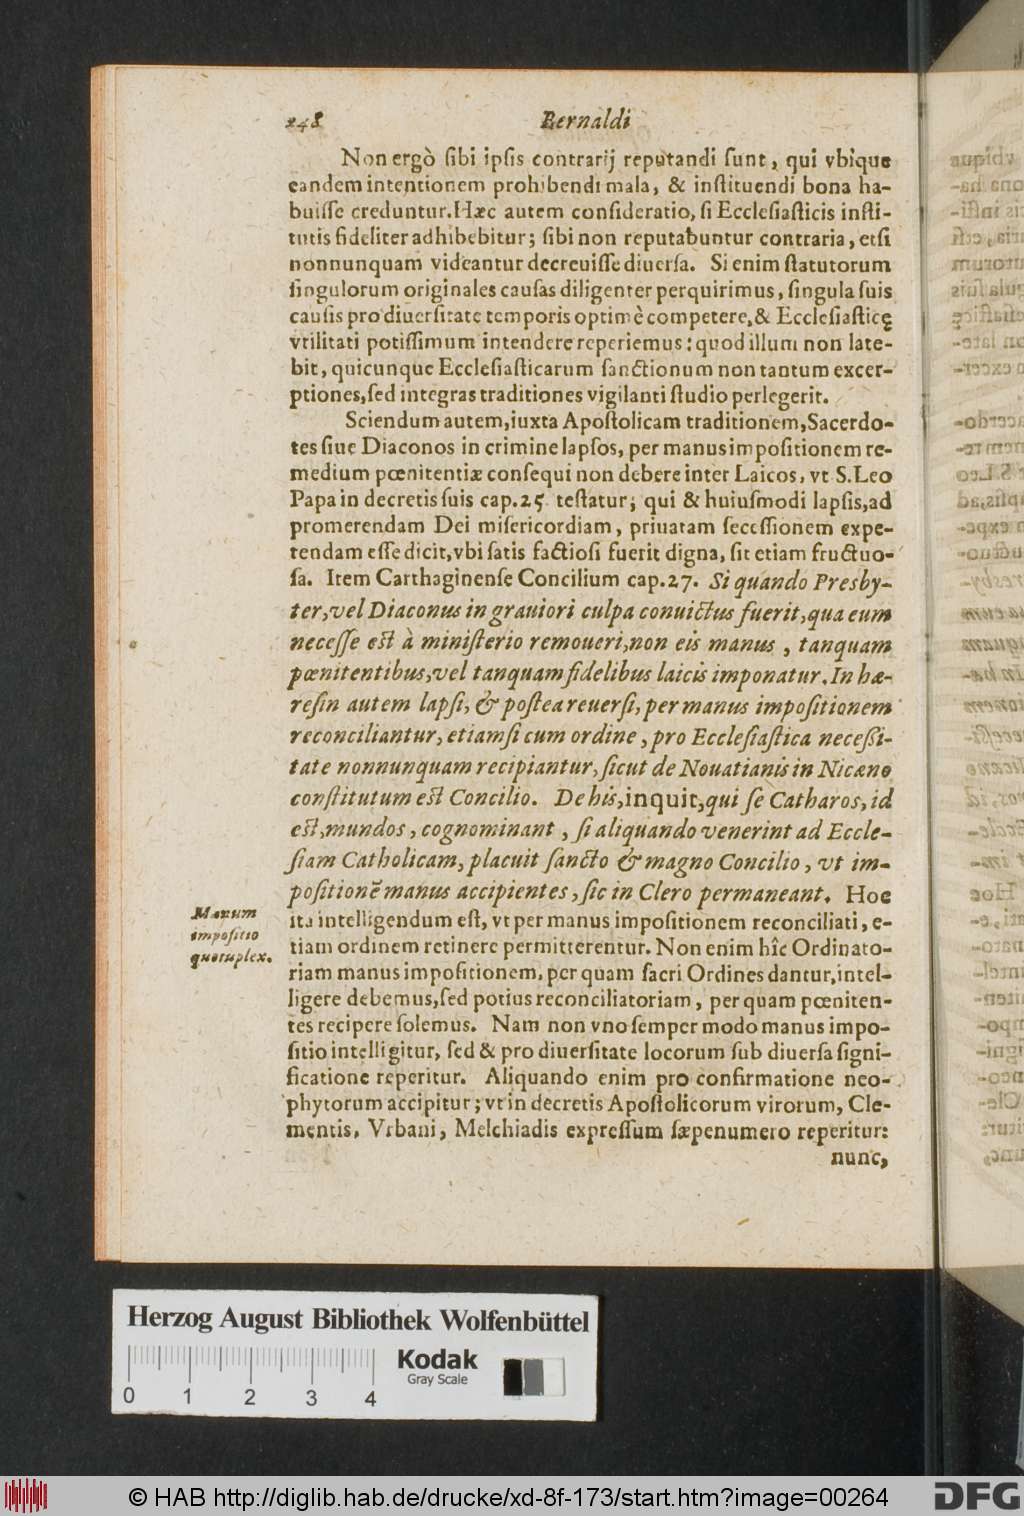 248 Bernaldi
Non ergò ſibi ipſis contrarij reputandi ſunt, qui vbique
eandem intentionem prohibendi mala, & inſtituendi bona ha-
buiſſe creduntur. Hæc autem conſideratio, ſi Eccleſiaſticis inſti-
tutis fideliter adhibebitur; ſibi non reputabuntur contraria, etſi
nonnunquam videantur decreuiſſe diuerſa. Si enim ſtatutorum
ſingulorum originales cauſas diligenter perquirimus, ſingula ſuis
cauſis pro diuerſitate temporis optimè competere, & Eccleſiaſticę
vtilitati potiſſimum intendere reperiemus: quod illum non late-
bit, quicunque Eccleſiaſticarum ſanctionum non tantum excer-
ptiones, ſed integras traditiones vigilanti ſtudio perlegerit.
Sciendum autem, iuxta Apoſtolicam traditionem, Sacerdo-
tes ſiue Diaconos in crimine lapſos, per manus impoſitionem re-
medium pœnitentiæ conſequi non debere inter Laicos, vt S. Leo
Papa in decretis ſuis cap. 25. teſtatur; qui & huiuſmodi lapſis, ad
promerendam Dei miſericordiam, priuatam ſeceſſionem expe-
tendam eſſe dicit, vbi ſatis factioſi fuerit digna, ſit etiam fructuo-
ſa. Item Carthaginenſe Concilium cap. 27. Si quando Presby-
ter, vel Diaconus in grauiori culpa conuictus fuerit, qua eum
neceſſe eſt à miniſterio remoueri, non eis manus, tanquam
pœnitentibus, vel tanquam fidelibus laicis imponatur. In hæ-
reſin autem lapſi, & poſtea reuerſi, per manus impoſitionem
reconciliantur, etiamſi cum ordine, pro Eccleſiaſtica neceſſi-
tate nonnunquam recipiantur, ſicut de Nouatianis in Nicæno
conſtitutum eſt Concilio. De his, inquit, qui ſe Catharos, id
eſt, mundos, cognominant, ſi aliquando venerint ad Eccle-
ſiam Catholicam, placuit ſancto & magno Concilio, vt im-
poſitionē manus accipientes, ſic in Clero permaneant. Hoc
Manum
impoſitio
quotuplex.
ita intelligendum eſt, vt per manus impoſitionem reconciliati, e-
tiam ordinem retinere permitterentur. Non enim hîc Ordinato-
riam manus impoſitionem, per quam ſacri Ordines dantur, intel-
ligere debemus, ſed potius reconciliatoriam, per quam pœniten-
tes recipere ſolemus. Nam non vno ſemper modo manus impo-
ſitio intelligitur, ſed & pro diuerſitate locorum ſub diuerſa ſigni-
ficatione reperitur. Aliquando enim pro confirmatione neo-
phytorum accipitur; vt in decretis Apoſtolicorum virorum, Cle-
mentis, Vrbani, Melchiadis expreſſum ſæpenumero reperitur:
nunc,
Herzog August Bibliothek Wolfenbüttel
Kodak
Gray Scale
0 1 2 3 4
© HAB http://diglib.hab.de/drucke/xd-8f-173/start.htm?image=00264
DFG